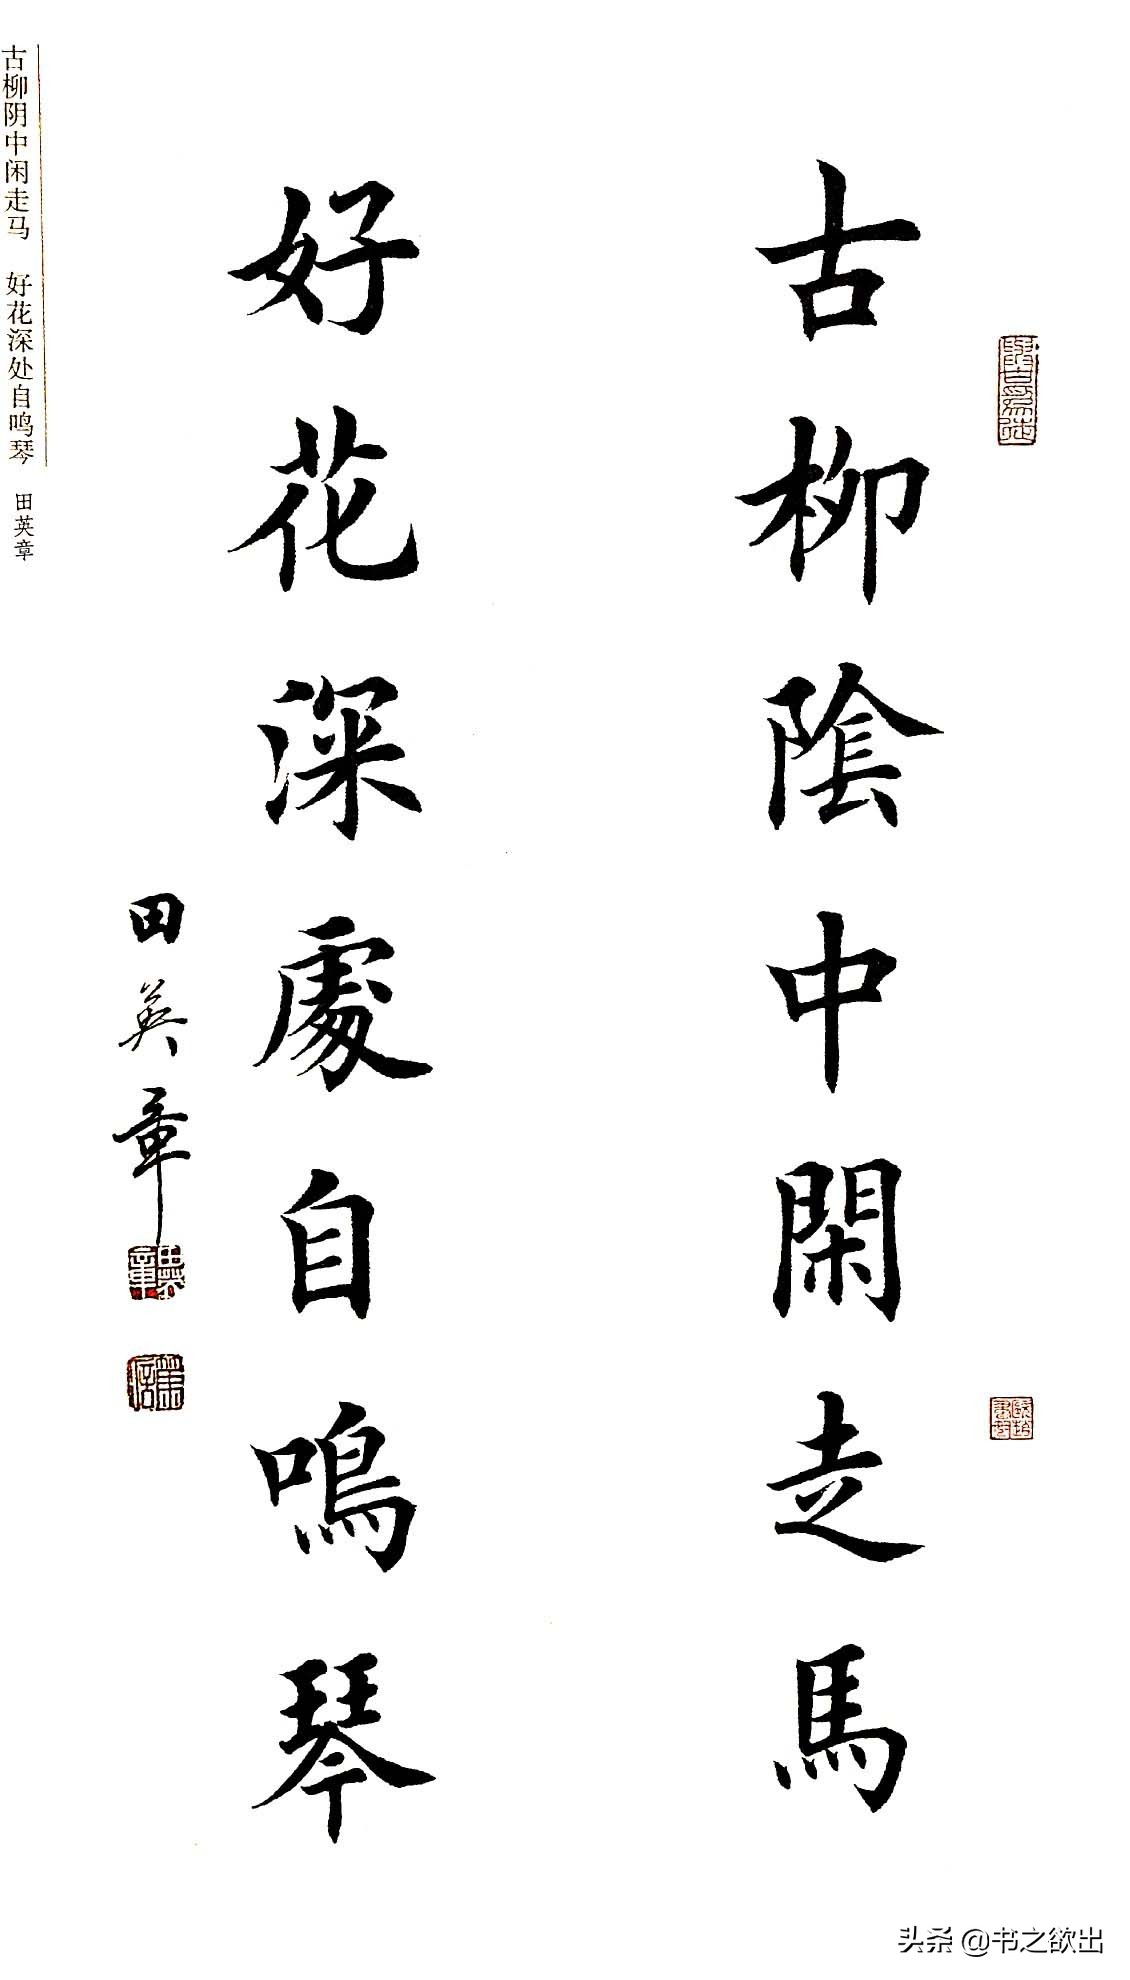 古柳陰中閑走馬
好花深處自鳴琴
田英章
田英章
古柳阴中闲走马 好花深处自鸣琴 田英章
头条 @书之欲出